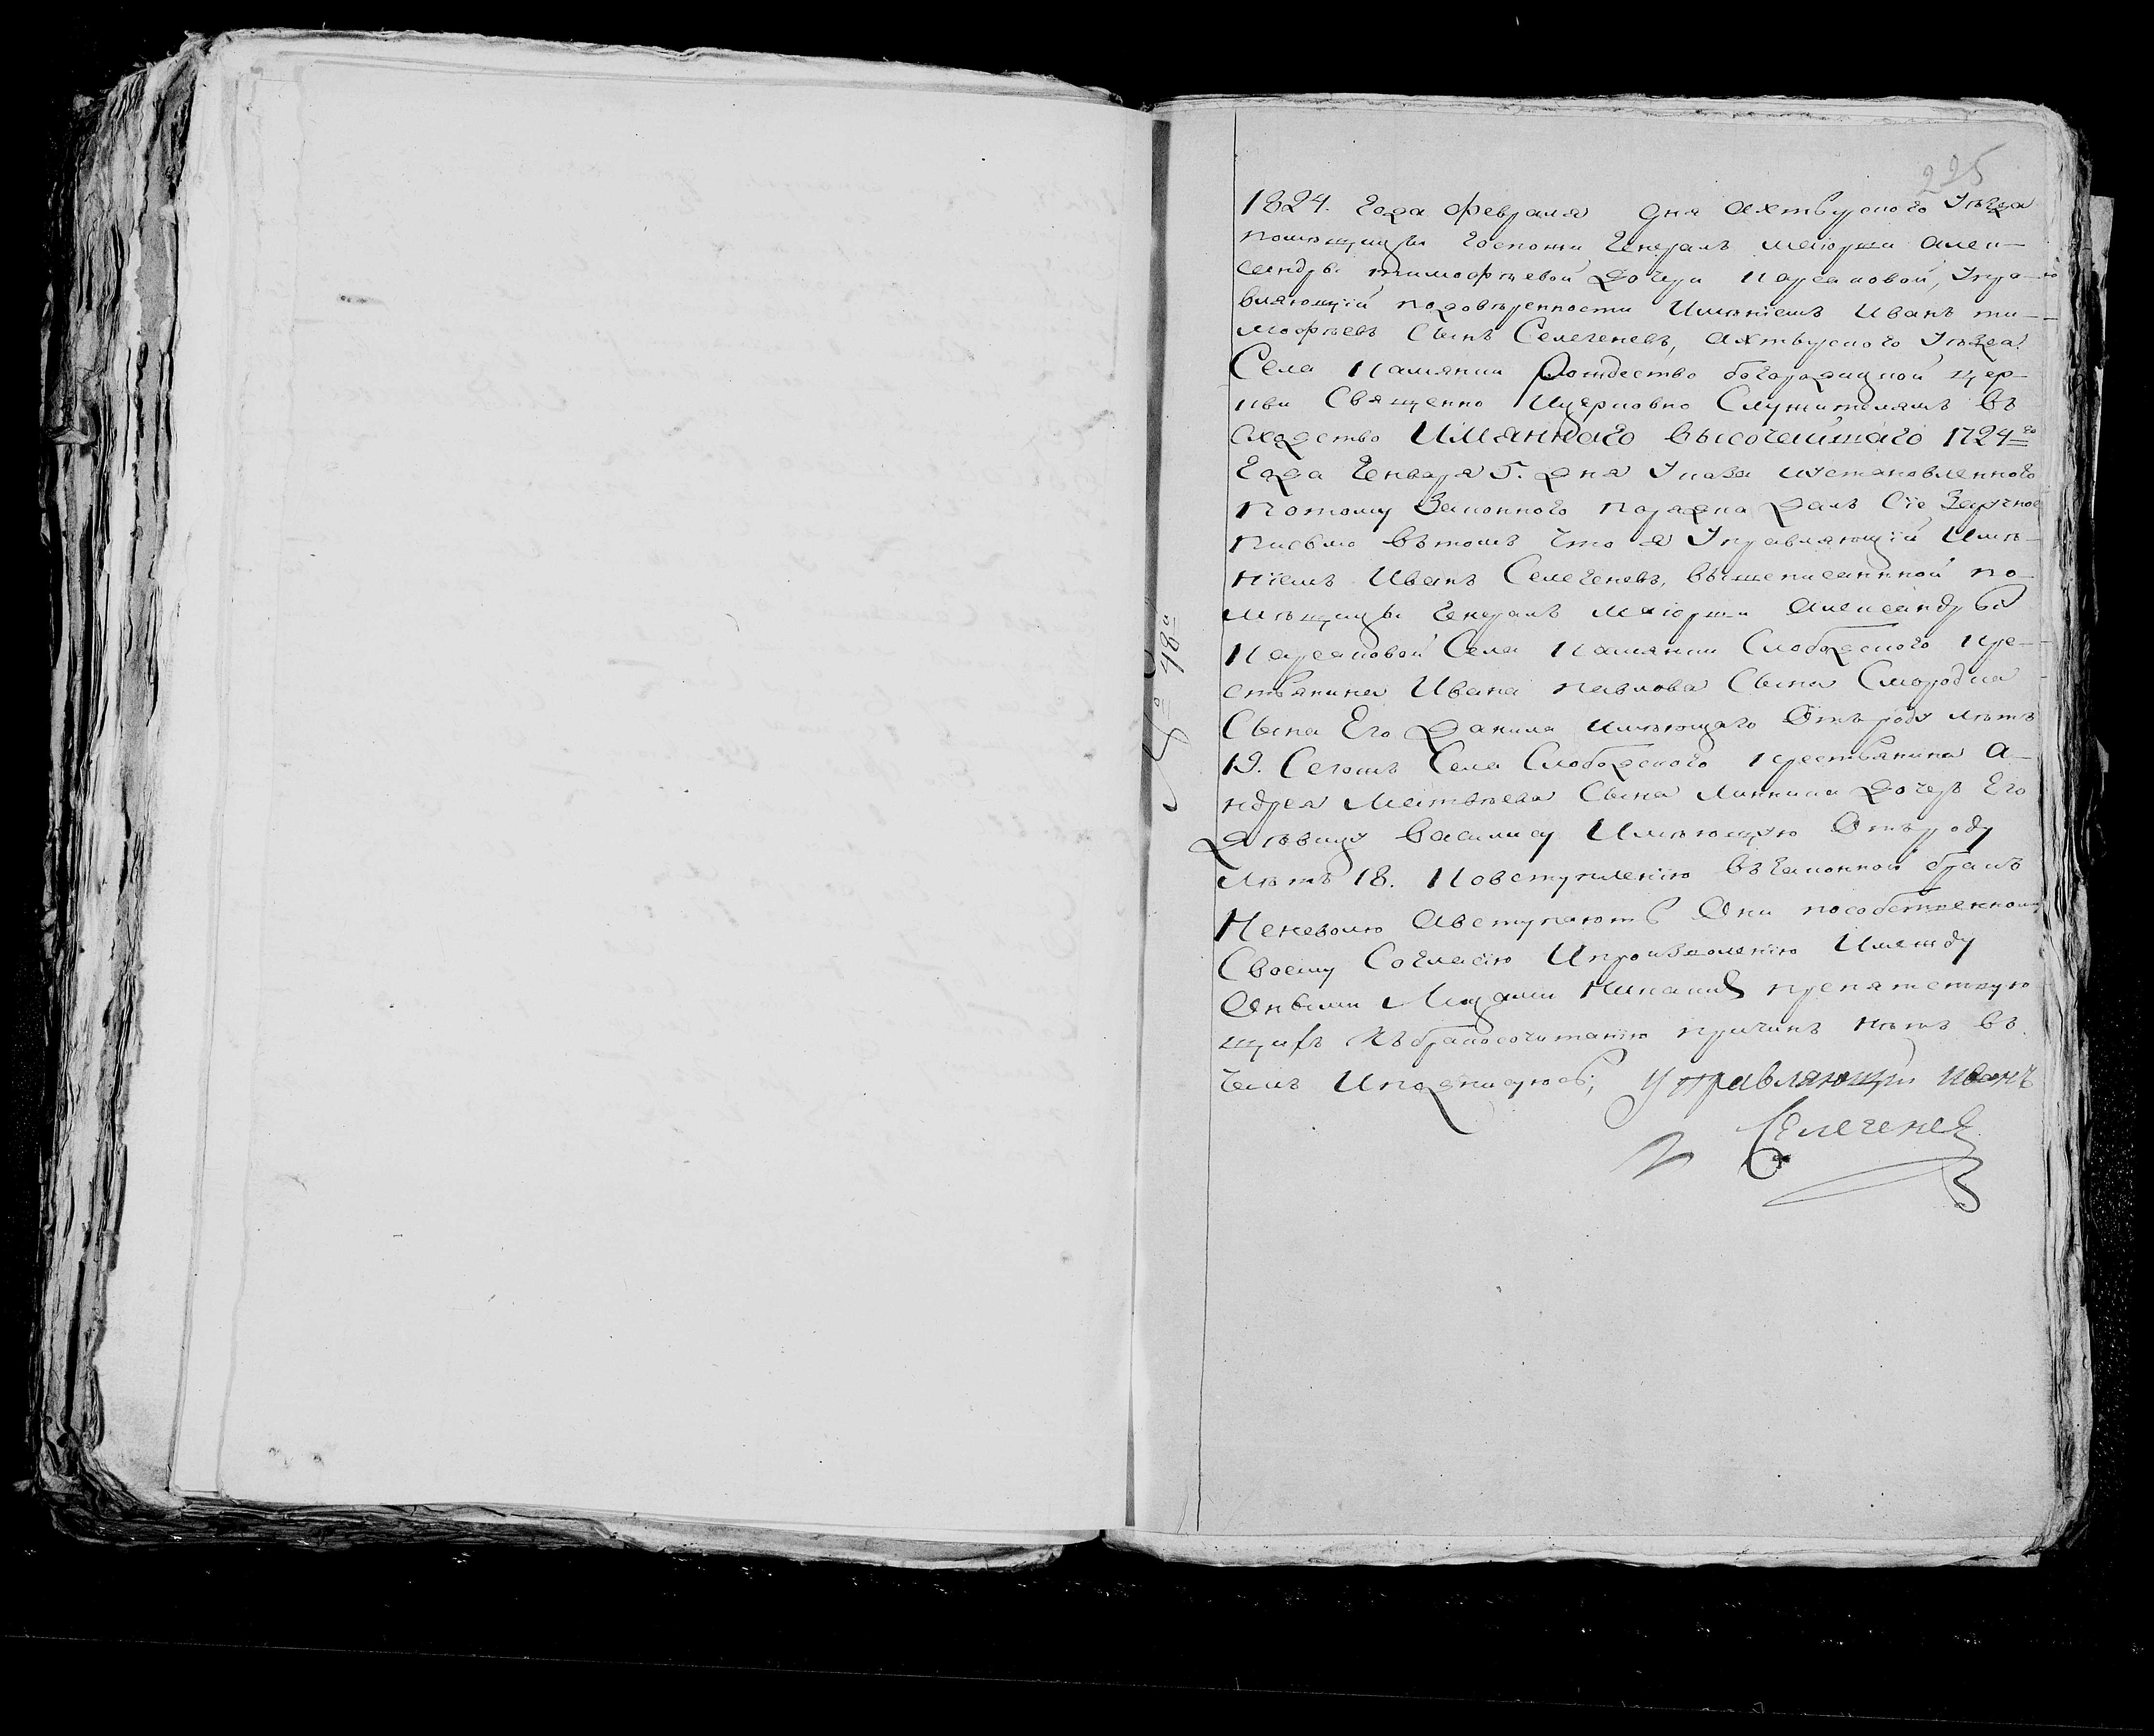 225
1824. года февраля дня Ахтырского Уѣзда
помѣщицы госпожи Генералъ маіорши Алек-
сандры тимофѣевой дочери Карсаковой, Упра-
вляющій подовѣренности Имѣніемъ Иванъ ти-
мофѣевъ Сынъ Селегеневъ, Ахтырского Уѣзда
Села Камянки Рождество богородицкой цер-
кви Священно Ицерковно Служителямъ въ
сходство Имяннаго высочайшаго 1724го
года Генваря 5. дня Указа иустановленного
потому Законного порядка далъ Сіе Заручное
письмо въ томъ что я Управляющій Имѣ-
ніемъ Иванъ Селегеневъ, вышеписанной по-
мѣщицы Генералъ маіорши Александры
Карсаковой Села Камянки Слободского кре-
стьянина Ивана павлова Сына Смородка
Сына Его Данила имѣющаго Отъ роду лѣтъ
19. Сегожъ Села Слободского крестьянина А-
ндрея Матвѣева Сына Линника дочерь Его
дѣвицу василису Имѣющую Отъ роду
лѣтъ 18. Ковступленію въ законной бракъ
Неневолю Авступаютъ Они пособственному
Своему Согласію Ипроизволенію Имежду
Оными Лицами Никакихъ препятствую
щихъ Къ бракосочитанію причинъ нѣтъ въ
чемъ Иподписуюсь; Управляющій иванъ
Селегенев
№ 48й